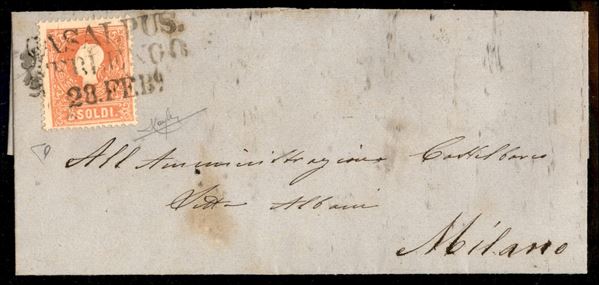 CASALPUS.
TERLENGO
28.FEB.º
5 SOLDI.
All'Amministrazione Castelbarco
Litta Albani
Milano